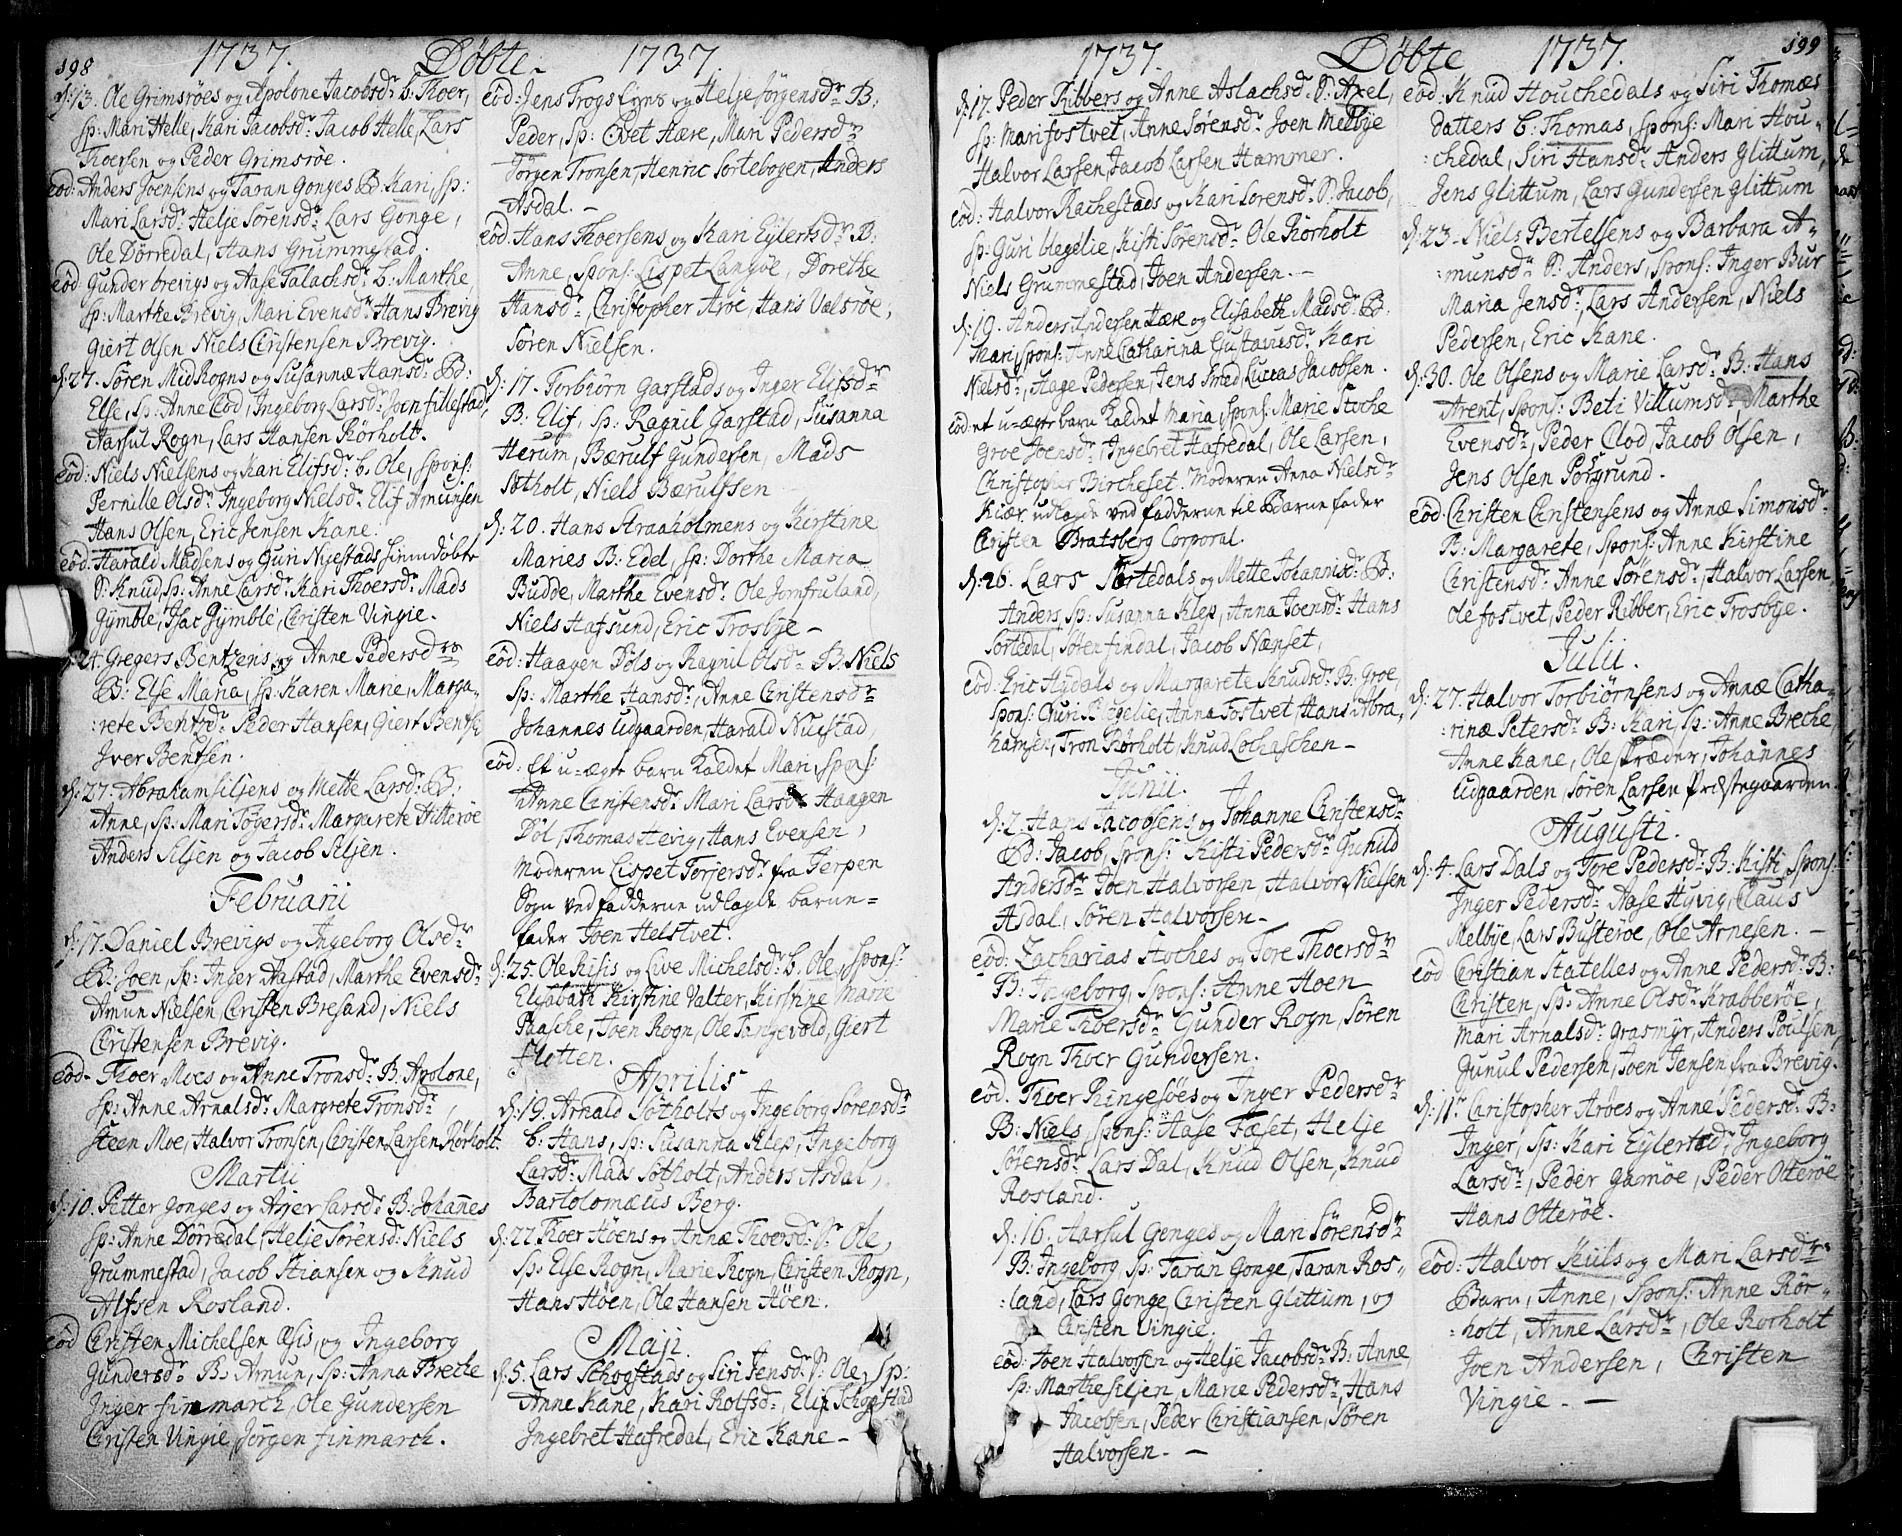 198
1737. Döbte. 1737.
d: 13. Ole Grimsröes og Apolone Jacobsd: b. Thoer,
sp: Mari Helle, Kari Jacobsd: Jacob Helle, Lars
Thoersen og Peder Grimsröe.
eod: Anders Joensens og Taran Gonges B: Kari, sp:
Mari Larsd: Helje Sörensd: Lars Gonge,
Ole Dörredal, Hans Grummestad.
eod Gunder brevigs og Aase Talachsd: b: Marthe
sp: Marthe Brevig, Mari Evensd: Hans Brevig
Giert Olsen Niels Christensen Brevig.
d: 27. Sören Midrogns og Susannæ Hansd: B:
Else, sp: Anne Clod, Ingeborg Larsd: Joen fillestad,
Aarsul Rogn, Lars Hansen Rörholt.
eod: Niels Nielsens og Kari Elifsd: b. Ole, spons:
Pernille Olsd: Ingeborg Nielsd: Elif Amunsen
Hans Olsen, Eric Jensen Kane.
eod: Harald Madsens og Guri Nuestads hiemdöbte
S: Knud, sp: Anne Larsd: Kari Thoersd: Mads
Gymble, Isac Gymble, Christen Vingie.
d: 24. Gregers Bentzens og Anne Pedersd:
B: Else Maria, sp: Karen Marie, Marga-
:rete Bentsd: Peder Hansen, Giert Bentsen
Iver Bentsen.
d: 27. Abraham siljens og Mette Larsd: B:
Anne, sp. Mari Tögersd: Margarete Hitteröe
Anders Siljen og Jacob Siljen.
Februarii
d: 17. Daniel Brevigs og Ingeborg Olsd:
B: Joen, sp: Inger Aastad, Marthe Evensd:
Amun Nielsen, Christen Bresand, Niels
Christensen Brevig.
eod- Thoer Moes og Anne Tronsd: B: Apolone,
sp: Anne Arnalsd: Margrete Tronsd:,
Steen Moe, Halvor Tronsen, Christen Larsen Rörholt.
Martii
d: 10. Petter Gonges og Asjer Larsd: B: Johannes
sp: Anne Dörredal, Helje Sörensd: Niels
Grummestad, Jacob Stiansen og Knud
Alfsen Rosland.
eod Christen Michelsen Æsis, og Ingeborg
Gundersd: B. Amun, sp: Anna Breche
Inger finmarch, Ole Gundersen
Christen Vingie, Jörgen finmarch.
eod: Jens Trogs Eyns og Helje Jörgensd: B:
Peder, sp: Civet Hære, Mari Pedersd:
Jörgen Tronsen, Henric Sortebogen, Anders
Asdal. -
eod. Hans Thoersens og Kari Eylertsd: B:
Anne, spons: Lispet Langöe, Dorethe
Hansd: Christopher Aröe, Hans Valsröe,
Sören Nielsen.
d: 17. Torbiörn Garstads og Inger Elifsd:
B: Elif, sp: Ragnil Garstad, Susanna
Herum, Bærulf Gundersen, Mads
Sötholt, Niels Bærulfsen
d: 20. Hans Straaholmens og Kirstine
Maries B: Edel, sp: Dorthe Maria
Budde, Marthe Evensd: Ole Jomfruland,
Niels Hafsund, Eric Trosbye -
eod: Haagen Döls og Ragnil Olsd: B: Niels
sp: Marthe Hansd: Anne Christensd:
Johannes Udgaarden, Harald Nuestad,
eod: Et u-ægte barn kaldet Mari, spons:
Anne Christensd: Mari Larsd: Haagen
Döl, Thomas Hevig, Hans Evensen,
Moderen Lispet Torjersd: fra Jerpen
Sogn ved fadderne udlagde barne=
fader Joen Helstvet.
d: 25. Ole Risis og Live Michelsd: b. Ole, spons:
Elisabath Kirstine Valter, Kirstine Marie
Paasche, Joen Rogn, Ole Tangevold, Giert
Flotten.
Aprilis
d: 19. Arnald Sötholts og Ingeborg Sörensd:
b: Hans, sp: Susanna Klep, Ingeborg
Larsd: Mads Sötholt, Anders Asdal,
Bartolomæus Berg.
d: 22. Thoer Höens og Annæ Thoersd: S: Ole,
sp. Else Rogn, Marie Rogn, Christen Rogn,
Hans Höen, Ole Hansen Höen.
Maji.
d: 5. Lars Schogstads og Siri Jensd: S: Ole, sp:
Anne Kane, Kari Rolfsd: Elif Schogstad
Ingebret Hafredal, Eric Kane -
1737. Döbte 1737.
199
d: 17. Peder Ribbers og Anne Aslachsd: S: Axel,
sp: Mari fostvet, Anne Sörensd: Joen Melbye
Halvor Larsen, Jacob Larsen Hammer.
eod: Halvor Rachestads og Kari Sorensd: S: Jacob,
sp: Guri Uegelie, Kisti Sörensd: Ole Rörholt
Niels Grummestad, Joen Andersen. -
d: 19. Anders Andersen Hære og Elisabeth Madsd: B:
Mari, spons: Anne Catharina Gustavusd: Kari
Nielsd:, Aage Pedersen, Jens Smed, Luccas Jacobsen.
eod: et u-ægte barn kaldet Maria, spons: Marie Stoche
Groe Joensd: Ingebret Hafredal, Ole Larsen,
Christopher Bircheset. Moderen Anna Nielsd:
Kiær, udlagde ved fadderne til Barnefader
Christen Bratsberg Corporal.
d: 26. Lars Sortedals og Mette Johannisd: B:
Anders, sp: Susanna Klep, Anna Joensd: Hans
Sortedal, Sören findal, Jacob Nænset,
eod: Eric Hydals og Margarete Knudsd: B: Groe,
spons: Guri Uegelie, Anna Fostvet, Hans Abra
hamsen, Tron Rörholt, Knud Lothaschen -
Junii.
d: 2. Hans Jacobsens og Johanne Christensd:
B: Jacob, spons: Kisti Pedersd: Gunild
Andersd: Joen Halvorsen, Halvor Nielsen
Asdal, Sören Halvorsen-
eod: Zacharias Stoches og Tore Thoersd:
B: Ingeborg, spons: Anne Hoen
Marie Thoersd: Gunder Rogn, Sören
Rogn Thoer Gundersen.
eod. Thoer Ringesöes og Inger Pedersd:
B: Niels, spons: Aase Fæset, Helje
Sörensd: Lars Dal, Knud Olsen, Knud
Rosland.
d: 16. Aarsul Gonges og Mari Sörensd:
B: Ingeborg, sp: Taran Gonge, Taran Ros-
:land, Lars Gonge, Christen Glittum, og
Christen Vingie.
eod: Joen Halvorsen og Helje Jacobsd: B: Anne,
sp: Marthe Siljen, Marie Pedersd: Hans
Jacobsen, Peder Christiansen, Sören
Halvorsen. -
eod: Knud Houchedals og Siri Thomæs
datters b: Thomas, spons: Mari Hou-
:chedal, Siri Hansd: Anders Glittum,
Jens Glittum, Lars Gundersen Glittum
d: 23- Niels Bertelsens og Barbara A-
:munsd: S: Anders, spons: Inger Bur
Maria Jensd: Lars Andersen, Niels
Pedersen, Eric Kane.
d: 30. Ole Olsens og Marie Larsd: B: Hans
Arent, spons: Beti Villumsd: Marthe
Evensd:, Peder Clod, Jacob Olsen,
Jens Olsen Porsgrund.
eod: Christen Christensens og Annæ Simonsd:
B: Margarete, spons: Anne Kirstine
Christensd: Anne Sörensd: Halvor Larsen,
Ole fostvet, Peder Ribber, Eric Trosbye.
Julii.
d: 27. Halvor Torbiörnsens og Annæ Catha-
:rinæ Petersd: B: Kari, sp: Anne Breche,
Anne Kane, Ole skræder, Johannes
Udgaarden, Sören Larsen Præstegaarden.
Augusti.
d: 4. Lars Dals og Tore Pedersd: B: Kisti, spons:
Inger Pedersd: Aase Hyvig, Claus
Melbye, Lars Busteröe, Ole Arnesen. -
eod Christian Statelles og Anne Pedersd: B:
Christen, sp: Anne Olsd: Krabberöe,
Mari Arnalsd: Grasmyr, Anders Poulsen,
Gunul Pedersen, Joen Jensen fra Brevig.
d: 11. Christopher Aröes og Anne Pedersd: B:
Inger, sp: Kari Eylertsd: Ingeborg
Larsd:, Peder Gamöe, Peder Otteröe
Hans Otteröe.
eod: Halvor Kiils og Mari Larsd:
Barn, Anne, spons: Anne Rör-
:holt, Anne Larsd:, Ole Rorholt
Joen Andersen, Christen
Vingie. -